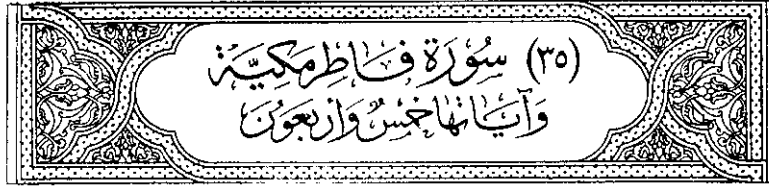 (٣٥) سُوْرَةُ فَاطِرٍ مَكِيَّةٌ
وَآيَاتُهَا خَمْسٌ وَأَرْبَعُوْنَ